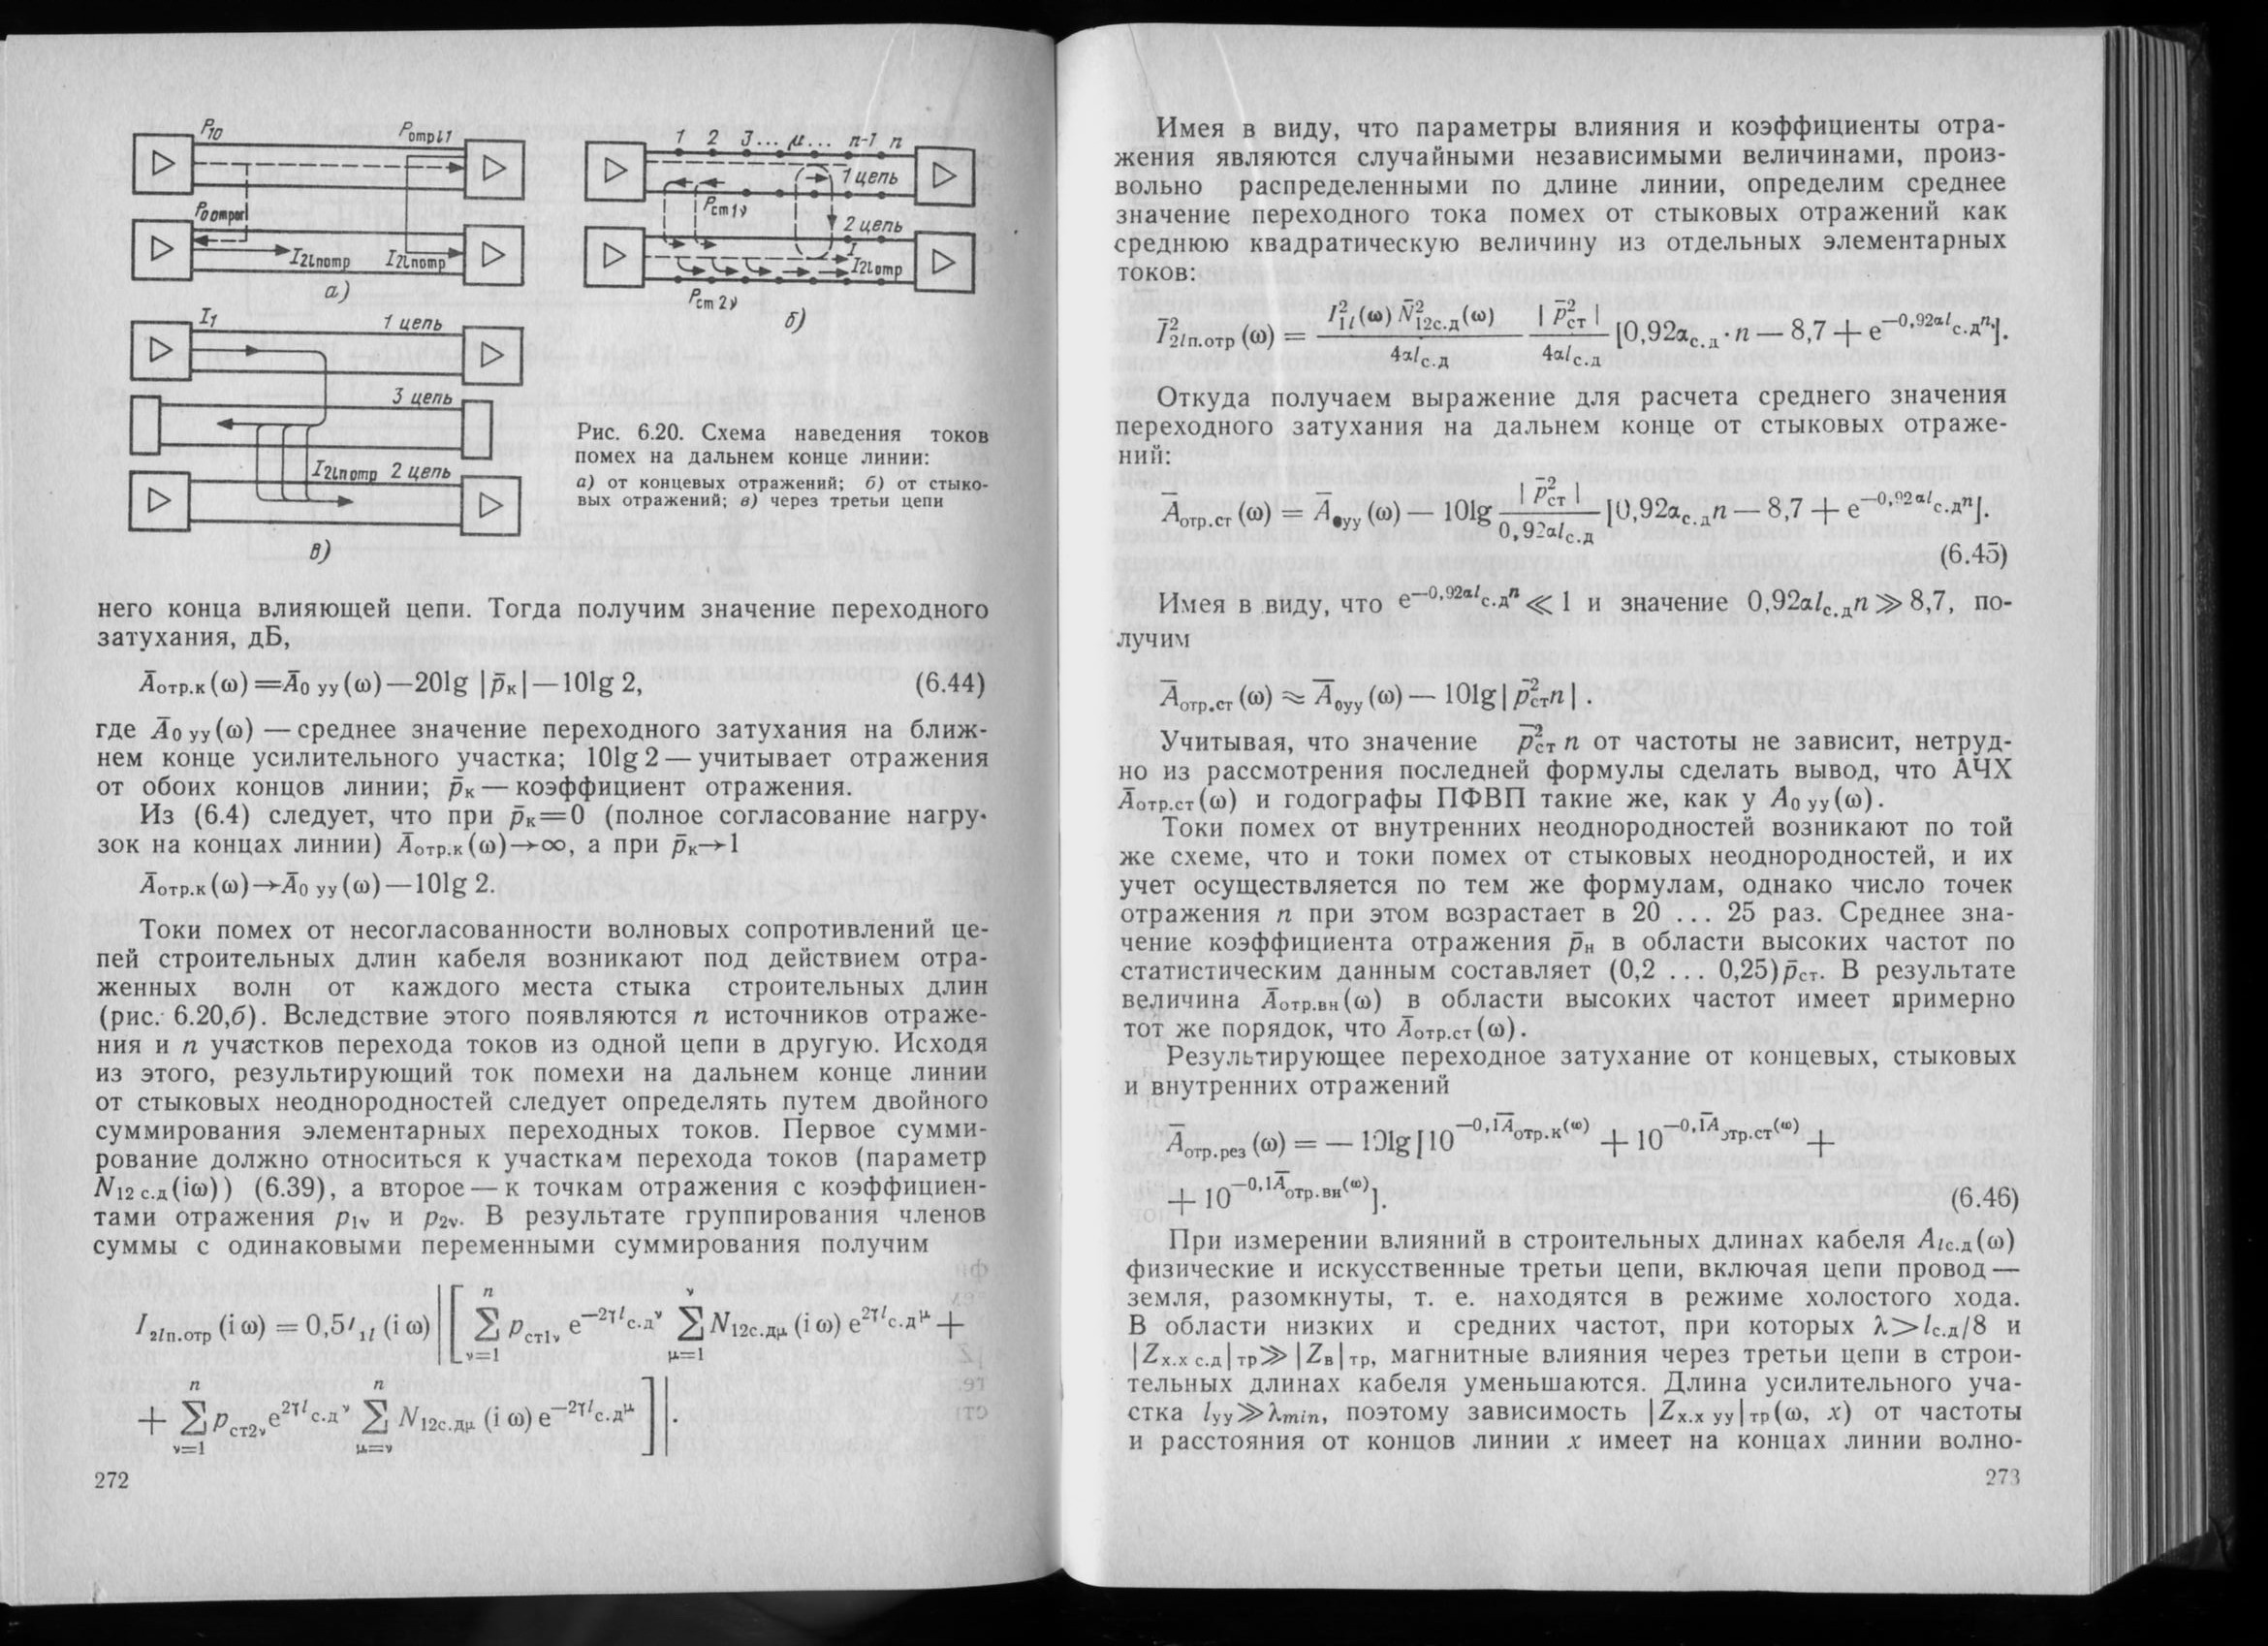 P10
Pотрl1
P0отрог1
I2lпотр
I2lпотр
а)
1 2 3... μ... n-1 n
1 цепь
Pст1ν
2 цепь
I2lотр
Pст2ν
б)
I1
1 цепь
3 цепь
I2lпотр 2 цепь
в)
Рис. 6.20. Схема наведения токов
помех на дальнем конце линии:
а) от концевых отражений; б) от стыко-
вых отражений; в) через третьи цепи
него конца влияющей цепи. Тогда получим значение переходного
затухания, дБ,
Āотр.к(ω)=Ā0 уу(ω)—20lg |p̄к|—10lg 2, (6.44)
где Ā0 уу(ω) — среднее значение переходного затухания на ближ-
нем конце усилительного участка; 10lg 2 — учитывает отражения
от обоих концов линии; p̄к — коэффициент отражения.
Из (6.4) следует, что при p̄к=0 (полное согласование нагру-
зок на концах линии) Āотр.к(ω)→∞, а при p̄к→1
Āотр.к(ω)→Ā0 уу(ω)—10lg 2.
Токи помех от несогласованности волновых сопротивлений це-
пей строительных длин кабеля возникают под действием отра-
женных волн от каждого места стыка строительных длин
(рис. 6.20,б). Вследствие этого появляются n источников отраже-
ния и n участков перехода токов из одной цепи в другую. Исходя
из этого, результирующий ток помехи на дальнем конце линии
от стыковых неоднородностей следует определять путем двойного
суммирования элементарных переходных токов. Первое сумми-
рование должно относиться к участкам перехода токов (параметр
N12 с.д(iω)) (6.39), а второе — к точкам отражения с коэффициен-
тами отражения p1ν и p2ν. В результате группирования членов
суммы с одинаковыми переменными суммирования получим
I2lп.отр (i ω) = 0,5I1l (i ω) |[ Σ(ν=1..n) pст1ν e^(−2γlс.дν) Σ(μ=1..ν) N12с.дμ (i ω) e^(2γlс.дμ) +
+ Σ(ν=1..n) pст2ν e^(2γlс.дν) Σ(μ=ν..n) N12с.дμ (i ω) e^(−2γlс.дμ) ]|.
272
Имея в виду, что параметры влияния и коэффициенты отра-
жения являются случайными независимыми величинами, произ-
вольно распределенными по длине линии, определим среднее
значение переходного тока помех от стыковых отражений как
среднюю квадратическую величину из отдельных элементарных
токов:
Ī²2lп.отр (ω) = I²1l(ω) N̄²12с.д(ω) / 4αlс.д · | p̄²ст | / 4αlс.д [0,92αс.д · n — 8,7 + e^(−0,92αlс.дn)].
Откуда получаем выражение для расчета среднего значения
переходного затухания на дальнем конце от стыковых отраже-
ний:
Āотр.ст (ω) = Ā0уу (ω) — 10lg | p̄²ст | / 0,92αlс.д [0,92αс.дn — 8,7 + e^(−0,92αlс.дn)].
(6.45)
Имея в виду, что e^(−0,92αlс.дn) ≪ 1 и значение 0,92αlс.дn ≫ 8,7, по-
лучим
Āотр.ст (ω) ≈ Ā0уу (ω) — 10lg | p̄²стn | .
Учитывая, что значение p̄²ст n от частоты не зависит, нетруд-
но из рассмотрения последней формулы сделать вывод, что АЧХ
Āотр.ст(ω) и годографы ПФВП такие же, как у A0 уу(ω).
Токи помех от внутренних неоднородностей возникают по той
же схеме, что и токи помех от стыковых неоднородностей, и их
учет осуществляется по тем же формулам, однако число точек
отражения n при этом возрастает в 20 ... 25 раз. Среднее зна-
чение коэффициента отражения p̄н в области высоких частот по
статистическим данным составляет (0,2 ... 0,25)p̄ст. В результате
величина Āотр.вн(ω) в области высоких частот имеет примерно
тот же порядок, что Āотр.ст(ω).
Результирующее переходное затухание от концевых, стыковых
и внутренних отражений
Āотр.рез (ω) = — 10lg [10^(−0,1Āотр.к(ω)) + 10^(−0,1Āотр.ст(ω)) +
+ 10^(−0,1Āотр.вн(ω))]. (6.46)
При измерении влияний в строительных длинах кабеля Alс.д(ω)
физические и искусственные третьи цепи, включая цепи провод —
земля, разомкнуты, т. е. находятся в режиме холостого хода.
В области низких и средних частот, при которых λ>lс.д/8 и
|Zх.х с.д|тр≫|Zв|тр, магнитные влияния через третьи цепи в строи-
тельных длинах кабеля уменьшаются. Длина усилительного уча-
стка lуу≫λmin, поэтому зависимость |Zх.х уу|тр(ω, x) от частоты
и расстояния от концов линии x имеет на концах линии волно-
273